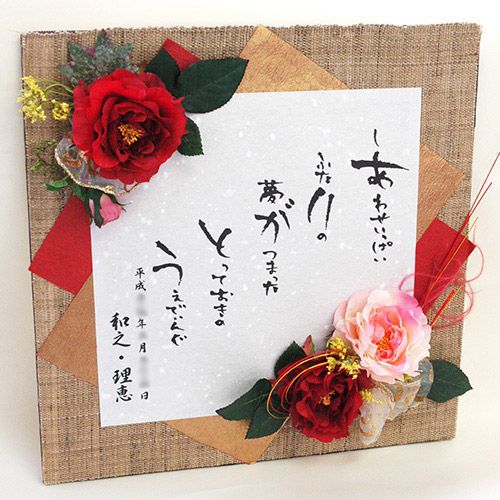 しあわせいっぱい
ふたりの
夢がつまった
とっておきの
うぇでぃんぐ
平成 年 月 日
和之・理恵